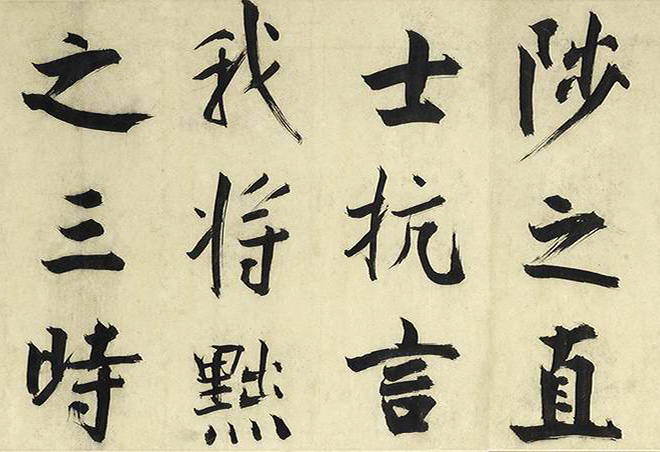 陟之直
士抗言
我将黜
之三時